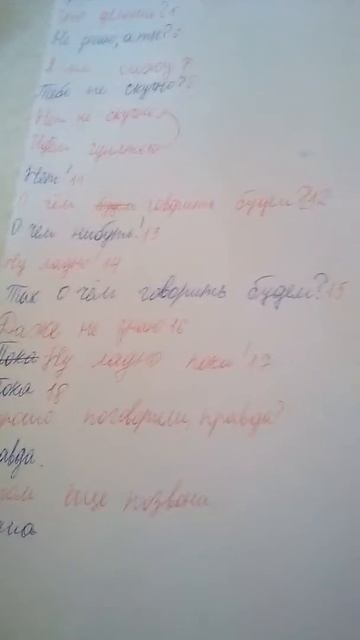 делаешь? 5
Не знаю, а ты? 6
Я
Тебе не скучно? 8
Нет не скучно
Идём гулять
Нет! 11
О чем говорить будем? 12
О чем нибудь! 13
Ну ладно! 14
Так о чем говорить будем? 15
Даже не знаю 16
Пока Ну ладно пока! 17
Пока 18
поговорили, правда?
авда.
еще позвони